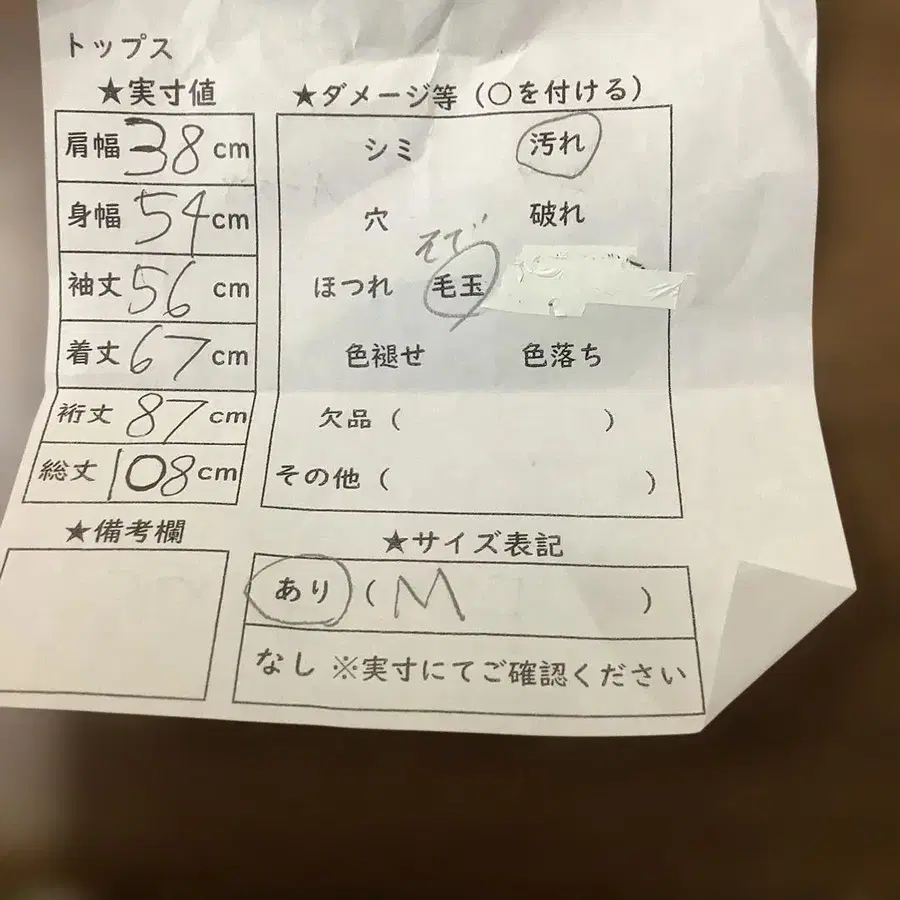 トップス
★実寸値
肩幅 38 cm
身幅 54 cm
袖丈 56 cm
着丈 67 cm
裄丈 87 cm
総丈 108 cm
★備考欄
★ダメージ等（○を付ける）
シミ 汚れ
穴 破れ
そで
ほつれ 毛玉
色褪せ 色落ち
欠品（ ）
その他（ ）
★サイズ表記
あり（M ）
なし ※実寸にてご確認ください